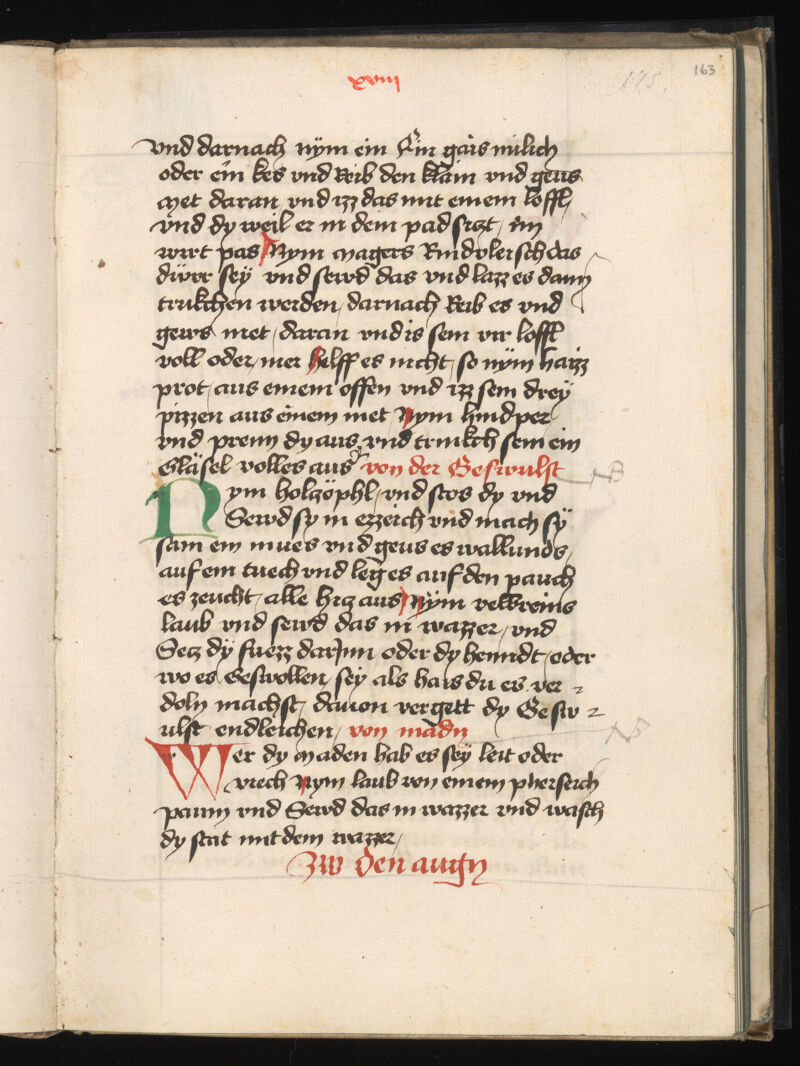 xviii
163
vnd darnach nÿm ein Ein gais milich
oder ein kes vnd Reib den klain vnd geus
met daran vnd izz das mit einem löffl,
vnd dy weil er in dem pad siczt, im
wirt pas Nym magers Rindvleisch das
dürr sey vnd sewd das vnd lazz es dann
trukchen werden, darnach Reib es vnd
gews met, daran vnd is sein vir löffl
voll oder, mer helff es nicht, so nÿm haizz
prot, aus einem offen vnd izz sein dreÿ
pizzen aus einem met Nym hindper
vnd prenn dy aus, vnd trinkch sein ein
Gläsel volles aus von der Geswulst
Nym holczöphl, vnd stos dy vnd
Sewd sy in ezzeich vnd mach sÿ
sam ein mues vnd geus es wallunds,
auf ein tuech vnd leg es auf den pauch
es zeucht, alle hicz aus Nÿm velbreins
laub vnd sewd das in wazzer, vnd
Secz dÿ fuezz darInn oder dy henndt, oder
wo es Geswollen, sey als hais du es ver
doln machst, dauon vergett dy Gesw
ulst endleichen, von madn
Wer dy maden hab es sey leit oder
viech Nym laub von einem phersich
paum vnd Sewd das in wazzer vnd wasch
dy stat mit dem wazzer,
Zw den augn